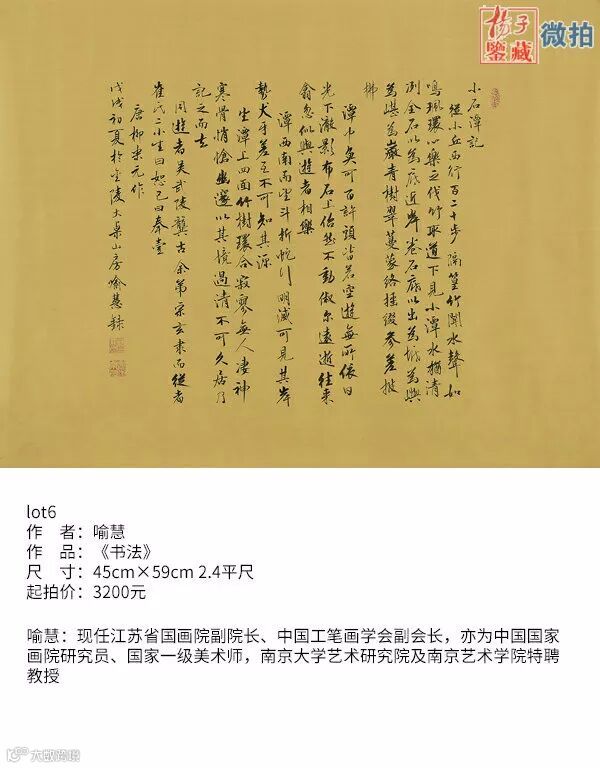 杨子
鑒藏
微拍
小石潭記
從小丘西行百二十步隔篁竹聞水聲如
鳴珮環心樂之伐竹取道下見小潭水猶清
洌全石以為底近岸卷石底以出為坻為嶼
為嵁為巖青樹翠蔓蒙絡搖綴參差披
拂
潭中魚可百許頭皆若空遊無所依日
光下澈影布石上佁然不動俶尔遠逝往來
翕忽似與遊者相樂
潭西南而望斗折蛇行明滅可見其岸
勢犬牙差互不可知其源
坐潭上四面竹樹環合寂寥無人凄神
寒骨悄愴幽邃以其境過清不可久居乃
記之而去
同遊者吳武陵龔古余弟宗玄隸而從者
崔氏二小生曰恕己曰奉壹
唐柳宗元作
戊戌初夏於金陵大桑山房喻慧録
lot6
作　者：喻慧
作　品：《书法》
尺　寸：45cm×59cm 2.4平尺
起拍价：3200元
喻慧：现任江苏省国画院副院长、中国工笔画学会副会长，亦为中国国家
画院研究员、国家一级美术师，南京大学艺术研究院及南京艺术学院特聘
教授
大数跨境